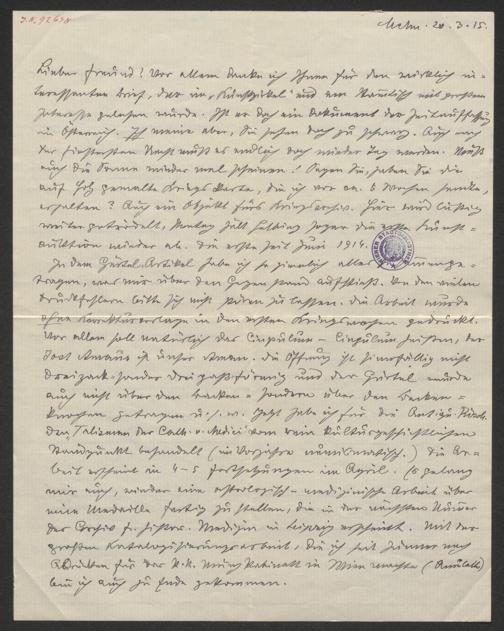 J.N. 92630
Mchn. 20.3.15.
Lieber Freund! Vor allem danke ich Ihnen für den wirklich in-
teressanten Brief, der im "Kunstzirkel" und am Stammtisch mit großem
Interesse gelesen wurde. Ist er doch ein Dokument der Zeitauffassung
in Österreich. Ich meine aber, Sie sehen doch zu schwarz. Auch aus
der finstersten Nacht muß es endlich doch wieder Tag werden. Muß
auch die Sonne wieder mal scheinen! Sagen Sie, haben Sie die
auf Holz gemalte Kriegskarte, die ich vor ca. 6 Wochen sandte,
erhalten? Auch ein Objekt fürs Kriegsarchiv. Hier wird lustig
weiter getrödelt, Montag hält Helbing sogar die erste Kunst-
auktion wieder ab. Die erste seit Juni 1914.
In dem Gürtel-Artikel habe ich so ziemlich alles zusammenge-
tragen, was mir über den Gegenstand aufstieß. An den vielen
Druckfehlern bitte sich nicht stören zu lassen. Die Arbeit wurde
ohne Korrekturvorlage in den ersten Kriegswochen gedruckt.
Vor allem soll natürlich das Cinpulum – Cingulum heißen, der
ist unser Mann. Die Öffnung ist nicht
dreizack- sondern dreipaßförmig und der Gürtel wurde
auch nicht über dem Nacken – sondern über den Becken-
knochen getragen u.s.w. Jetzt habe ich für die
den Talisman der Cath. v. Medici vom rein kulturgeschichtlichen
Standpunkt behandelt (im Vorjahre numismatisch.) Die Ar-
beit erscheint in 4–5 Fortsetzungen im April. Es gelang
mir auch, wieder eine astrologisch-medizinische Arbeit über
eine Medaille fertig zu stellen, die in der nächsten Nummer
des Archiv f. Histor. Medizin in Leipzig erscheint. Mit der
großen Katalogisierungsarbeit, die ich seit Jänner nach
für das K.K. Münzkabinett in Wien machte (Amulette)
bin ich auch zu Ende gekommen.